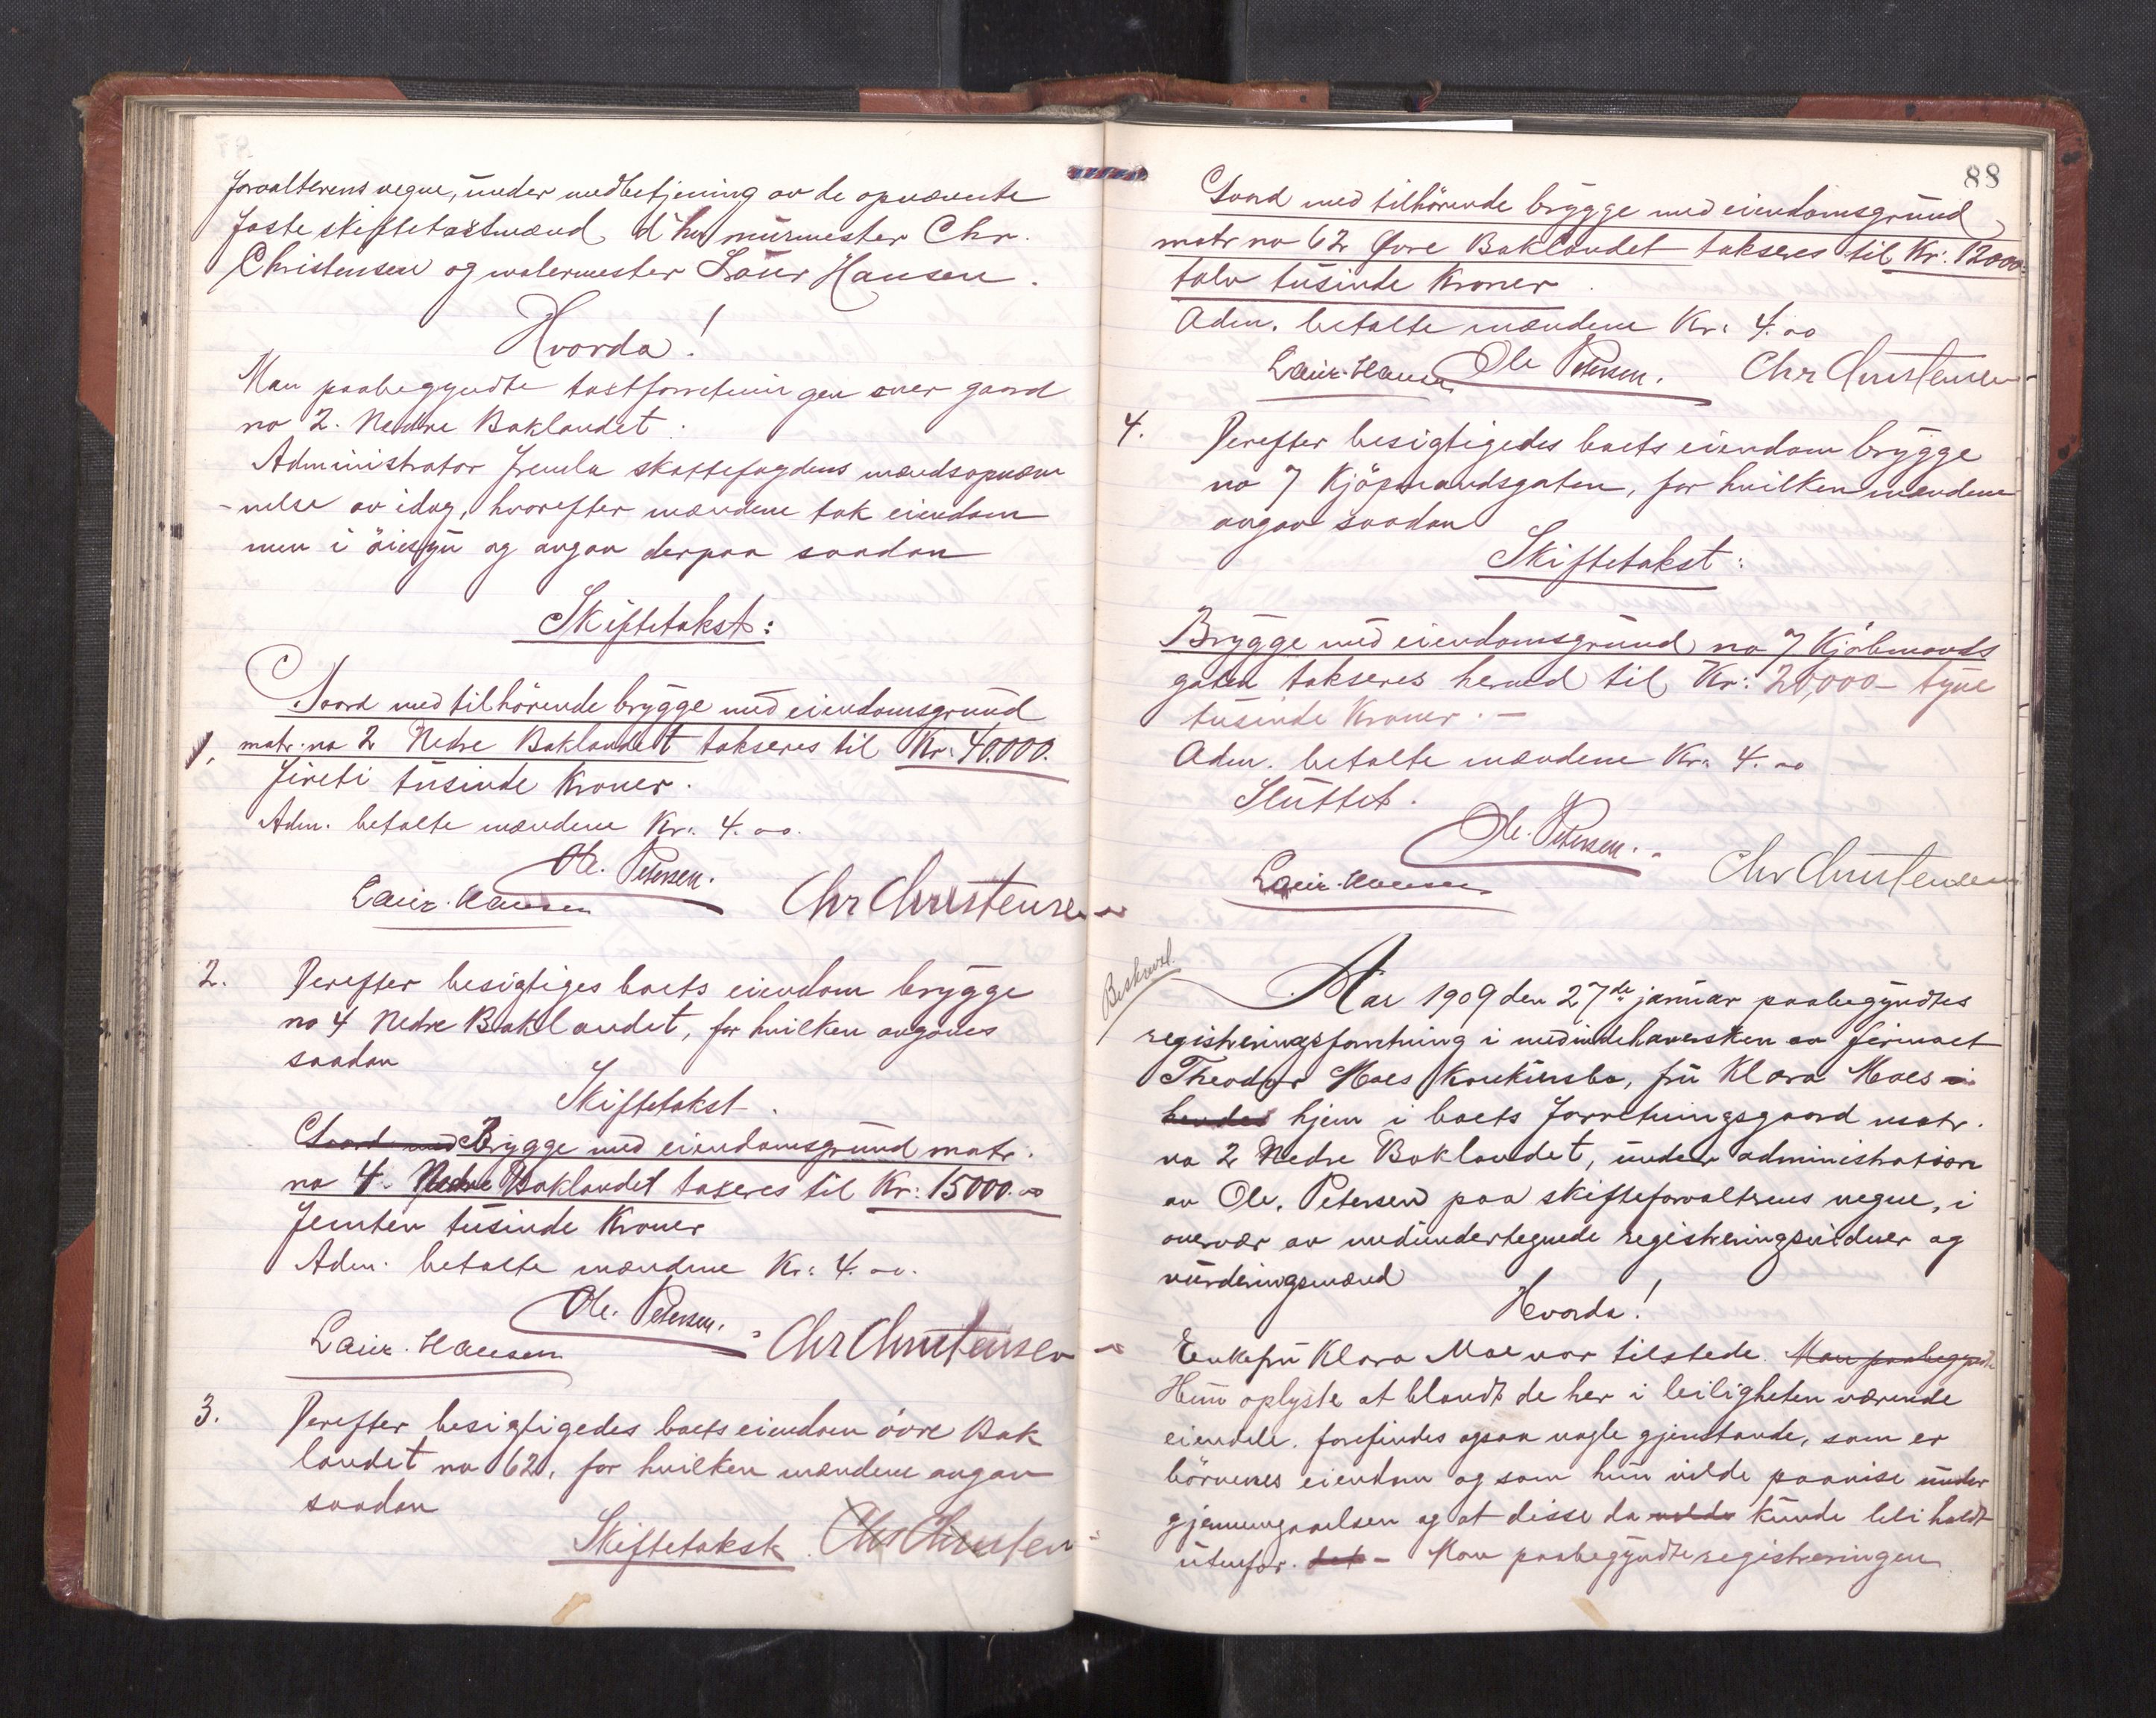 forvalterens vegne, under medbetjening av de opnævnte
faste skiftetaxtmænd d'hrr murmester Chr.
Christensen og malermester Laur Hansen.
Hvorda!
Man paabegyndte taxtforretningen over gaard
no 2. Nedre Baklandet:
Administrator fremla skattefogdens mændsopnæv
-nelse av idag, hvorefter mændene tok eiendom
men i öiesyn og avgav derpaa saadan
Skiftetakst:
Gaard med tilhörende brygge med eiendomsgrund
1. matr. no 2 Nedre Baklandet takseres til Kr: 40.000.
firti tusinde Kroner.
Adm. betalte mændene Kr: 4.00.
Ole. Petersen.
Laur. Hansen Chr Christensen
2. Derefter besigtiges boets eiendom brygge
no 4 Nedre Baklandet, for hvilken avgaves
saadan
Skiftetakst.
Gaard med Brygge med eiendomsgrund matr.
no 4. Nedre Baklandet taxeres til Kr: 15000.00
femten tusinde Kroner
Adm. betalte mændene Kr: 4.00.
Ole. Petersen.
Laur. Hansen Chr Christensen
3. Derefter besigtigedes boets eiendom övre Bak
landet no 62, for hvilken mændene avgav
saadan
Skiftetakst. Chr Christen
88
Gaard med tilhörende brygge med eiendomsgrund
matr no 62 Övre Baklandet takseres til Kr: 12000.
tolv tusinde Kroner.
Adm. betalte mændene Kr: 4.00
Laur. Hansen Ole Petersen. Chr Christensen
4. Derefter besigtigedes boets eiendom brygge
no 7 Kjöpmandsgaten, for hvilken mændene
avgav saadan
Skiftetakst:
Brygge med eiendomsgrund no 7 Kjöbmands
gaten takseres herved til Kr: 20,000 - tyve
tusinde Kroner. -
Adm. betalte mændene Kr: 4.00
Sluttet.
Ole. Petersen.
Laur. Hansen Chr Christensen
Beskrevet.
Aar 1909 den 27de januar paabegyndtes
registreringsforretning i medindehaversken av firmaet
Theodor Moes Konkursbo, fru Klara Moes i
hendes hjem i boets forretningsgaard matr.
no 2 Nedre Baklandet, under administration
av Ole. Petersen paa skifteforvalterens vegne, i
overvær av medundertegnede registreringsvidner og
vurderingsmænd
Hvorda!
Enkefru Klara Moe var tilstede. Man paabegyndte
Hun oplyste at blandt de her i leiligheten værende
eiendele. forefindes ogsaa nogle gjenstande, som er
börnenes eiendom og som hun vilde paavise under
gjennemgaaelsen og at disse da vilde kunde bli holdt
utenfor. det - Man paabegyndte registreringen